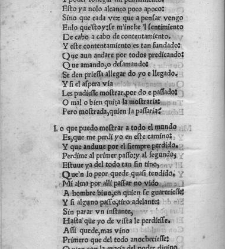 Esto yo solo alcanço poco apoco:
Sino que cada vez que a pensar vengo
Enlo questo y se m'inche l'sentimiento
De cabo a cabo de contentamiento.
Y este contentamiento es tan fundado:
Que aun andare por todos predicando:
Que amando, o desamando:
Se den priessa allegar do yo e llegado,
Y si el aspera via
Les pudiesse mostrar, por do e passado:
O mal o bien quiça la mostraria:
Pero mostrada, quien la passaria?
Lo que puedo mostrar a todo el mundo
Es, que me perdi yo en este camino:
Y que anduue por el siempre perdido.
Perdime al primer passo, y al segundo
Estuue ya del todo tan sin tino,
Qu'en lo peor quede quasi tendido.
Mi alma por alli passar no vido
A hombre biuo, en quien se
Y si alguno passo, tiro adelante
Sin parar vn instante,
Hasta que yo de vista le perdiesse.
Assi que, desde
Primero que del todo anochecisse: